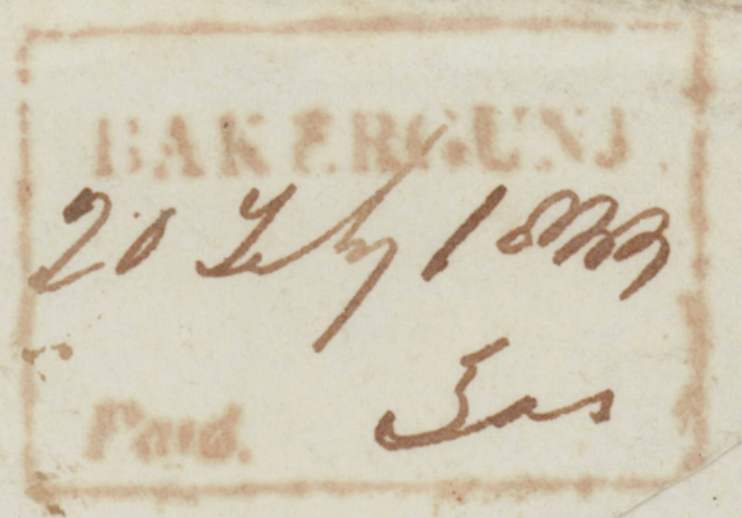 BAKERGUNJ.
20 Feby 1833
Paid. 3as